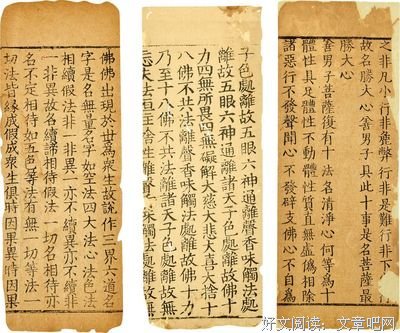 之非凡小行非麁弊行非是難行非下
故名勝大心善男子具此十事是名菩薩最
勝大心
善男子菩薩復有十法名清淨心何等為十
體性具足體性不動體性質直無虛偽相除
諸惡行不發聲聞心不發辟支佛心不自為
子色處離故五眼六神通離聲香味觸法處
離故五眼六神通離諸天子色處離故佛十
力四無所畏四無礙解大慈大悲大喜大捨十
八佛不共法離聲香味觸法處離故佛十力
乃至十八佛不共法離諸天子色處離故無
忘失法恒住捨性離聲香味觸法處離故無
佛佛出現於世為衆生故說作三界六道名
字是名無量名字如空法四大法心法色法
相續假法非一非異一亦不續異亦不續非
一非異故名續諦相待假法一切名相待亦
名不定相待如五色等法有無一切等法一
切法皆緣成假成衆生俱時因果異時因果
好文阅读：文章吧网